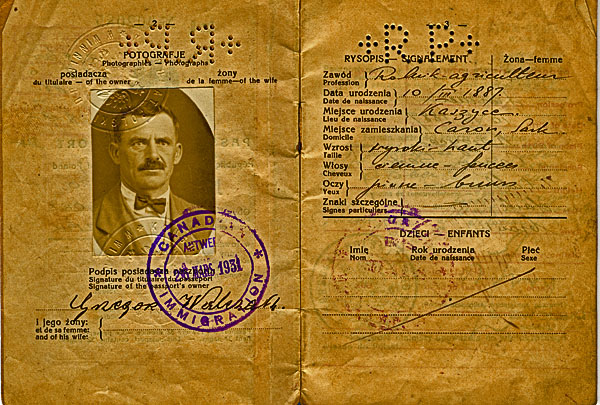 - 2 -
FOTOGRAFJE
Photographies — Photographs
posiadacza
du titulaire — of the owner
żony
de la femme—of the wife
CANADIAN
28 MARS 1931
IMMIGRATION
Podpis posiadacza
Signature du titulaire du passeport
Signature of the passport's owner
I jego żony:
et de sa femme:
and of his wife:
3
+R.P.+
RYSOPIS — SIGNALEMENT
Żona—femme
Zawód
Profession
Rolnik agriculteur
Data urodzenia
Date de naissance
10/III 1887.
Miejsce urodzenia
Lieu de naissance
Miejsce zamieszkania
Domicile
Caron, Sask
Wzrost
Taille
wysoki - haut
Włosy
Cheveux
ciemne - foncés
Oczy
Yeux
piwne - bruns
Znaki szczególne
Signes particuliers
DZIECI — ENFANTS
Imię
Nom
Rok urodzenia
Date de naissance
Płeć
Sexe